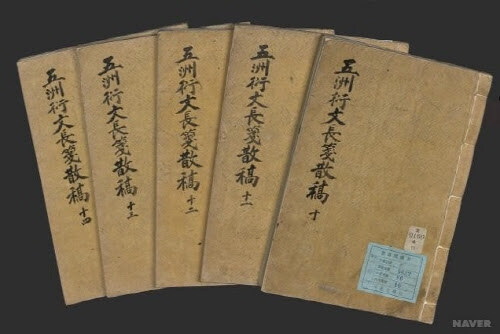 五洲衍文長箋散稿 十四
五洲衍文長箋散稿 十三
五洲衍文長箋散稿 十二
五洲衍文長箋散稿 十一
五洲衍文長箋散稿 十
NAVER